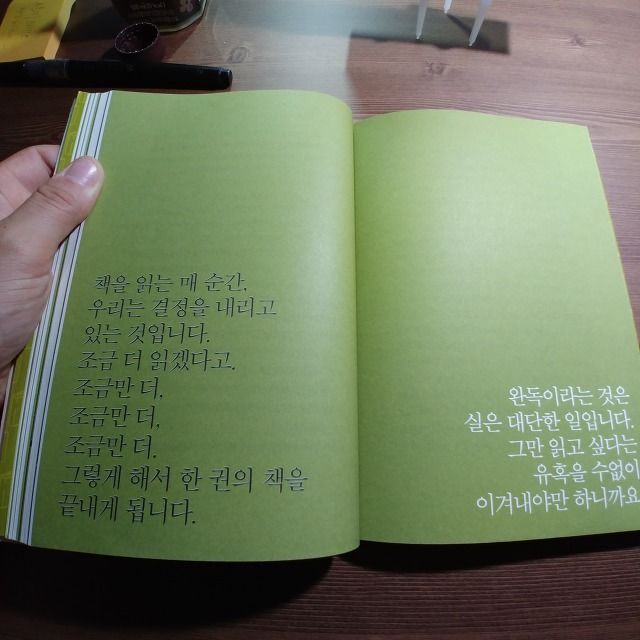 책을 읽는 매 순간,
우리는 결정을 내리고
있는 것입니다.
조금 더 읽겠다고.
조금만 더,
조금만 더,
조금만 더.
그렇게 해서 한 권의 책을
끝내게 됩니다.
완독이라는 것은
실은 대단한 일입니다.
그만 읽고 싶다는
유혹을 수없이
이겨내야만 하니까요